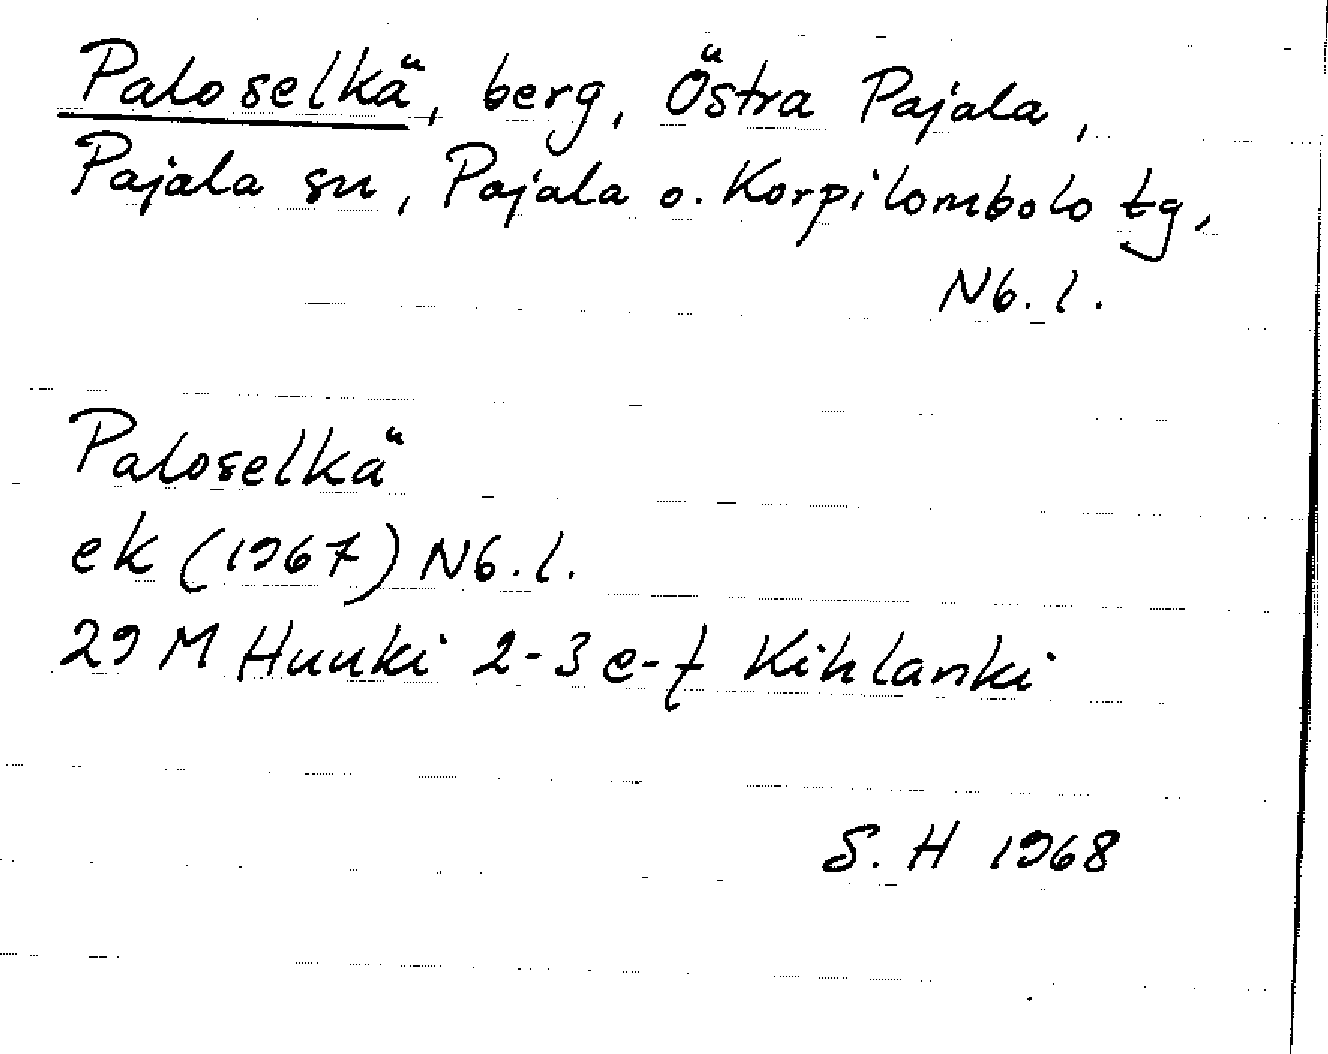 Paloselkä, berg, Östra Pajala,
Pajala sn, Pajala o. Korpilombolo tg,
Nb. l.
Paloselkä
ek (1967) Nb. l.
29 M Huuki 2-3 e-f Kihlanki
S. H 1968